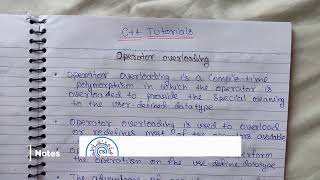 C++ Tutorials
Operator overloading
• Operator overloading is a compile-time
polymorphism in which the operator is
overloaded to provide the special meaning
to the user-defined datatype
• Operator overloading is used to overload
or redefines most of the operators available
perform
the operation on the user-define datatype
• The advantage of
Notes